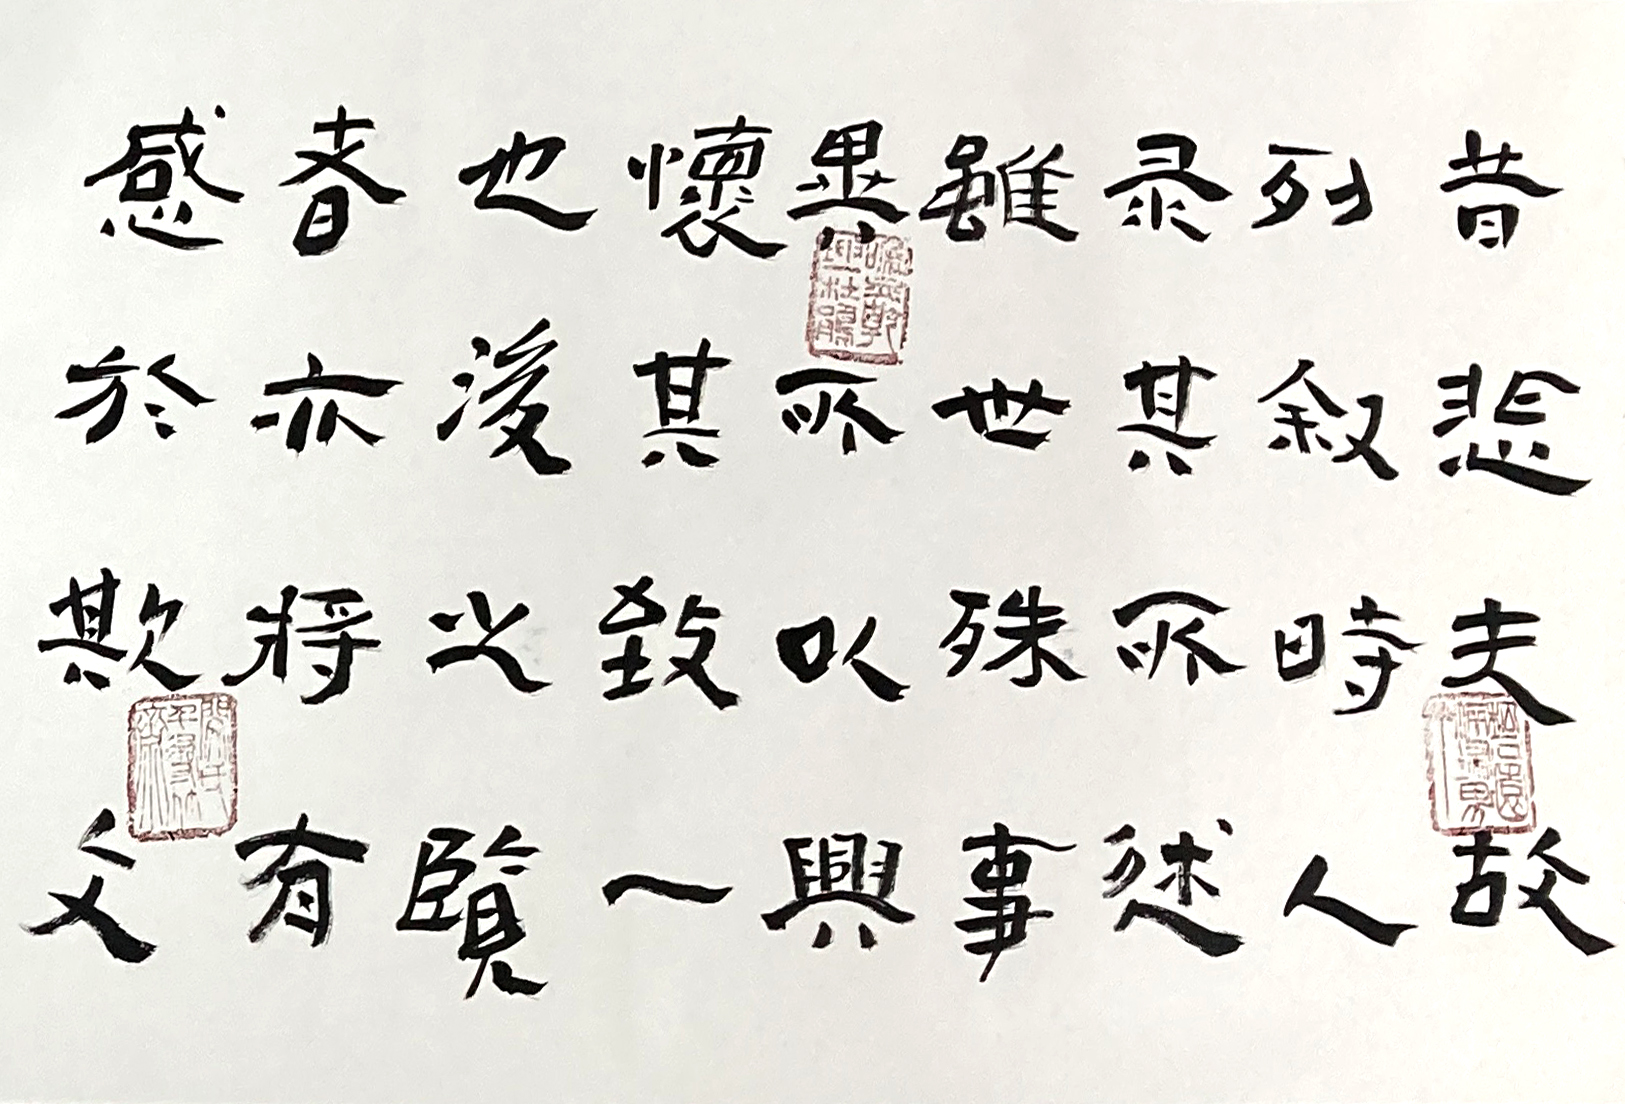 昔悲夫故
列叙時人
录其所述
雖世殊事
異所以興
懷其致一
也後之覽
者亦將有
感於斯文